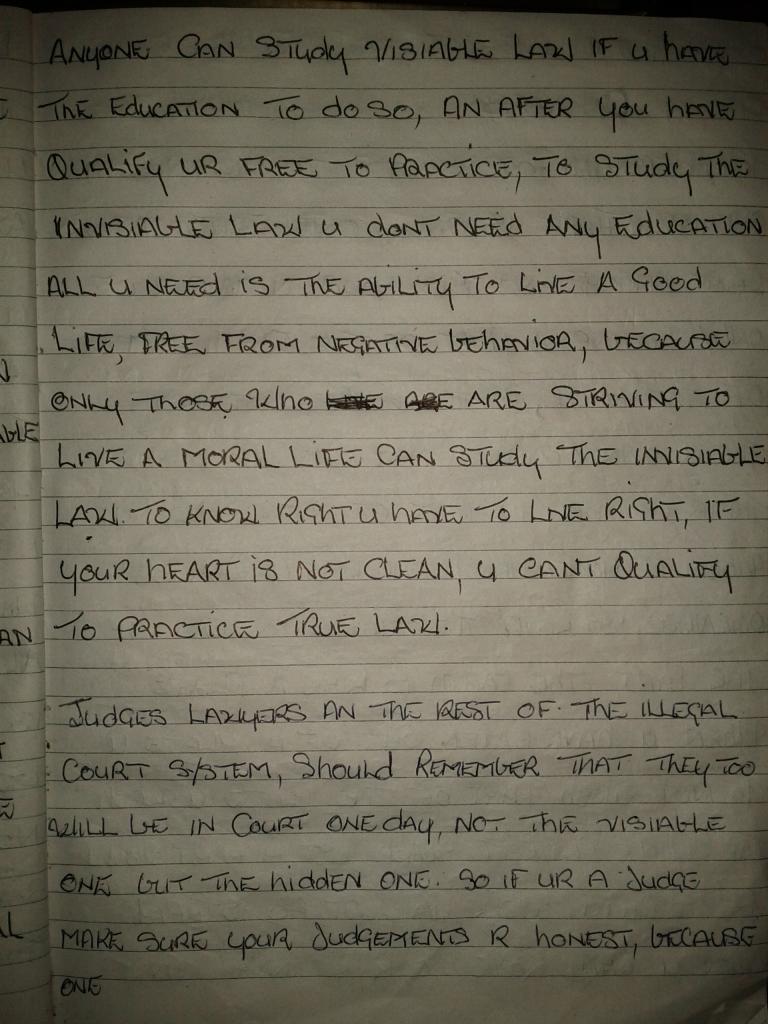 ANYONE CAN STUDY VISIABLE LAW IF U HAVE
THE EDUCATION TO do SO, AN AFTER YOU HAVE
QUALIFY UR FREE TO PRACTICE, TO STUDY THE
INVISIABLE LAW U dONT NEED ANY EDUCATION
ALL U NEED IS THE ABILITY TO LIVE A Good
LIFE, FREE FROM NEGATIVE bEhAVIOR, bECAUSE
ONLY THOSE Who ARE STRIVING TO
LIVE A MORAL LIFE CAN STUDY THE INVISIABLE
LAW. TO KNOW RIGHT U HAVE TO LIVE RIGHT, IF
YOUR hEART IS NOT CLEAN, U CANT QUALIFY
TO PRACTICE TRUE LAW.
JUDGES LAWYERS AN THE REST OF THE ILLEGAL
COURT SYSTEM, Should REMEMBER THAT THEY TOO
WILL bE IN COURT ONE day, NOT THE VISIABLE
ONE bUT THE hiddEN ONE. SO IF UR A JUdGE
MAKE SURE YOUR JUdGEMENTS R hONEST, bECAUSE
ONE